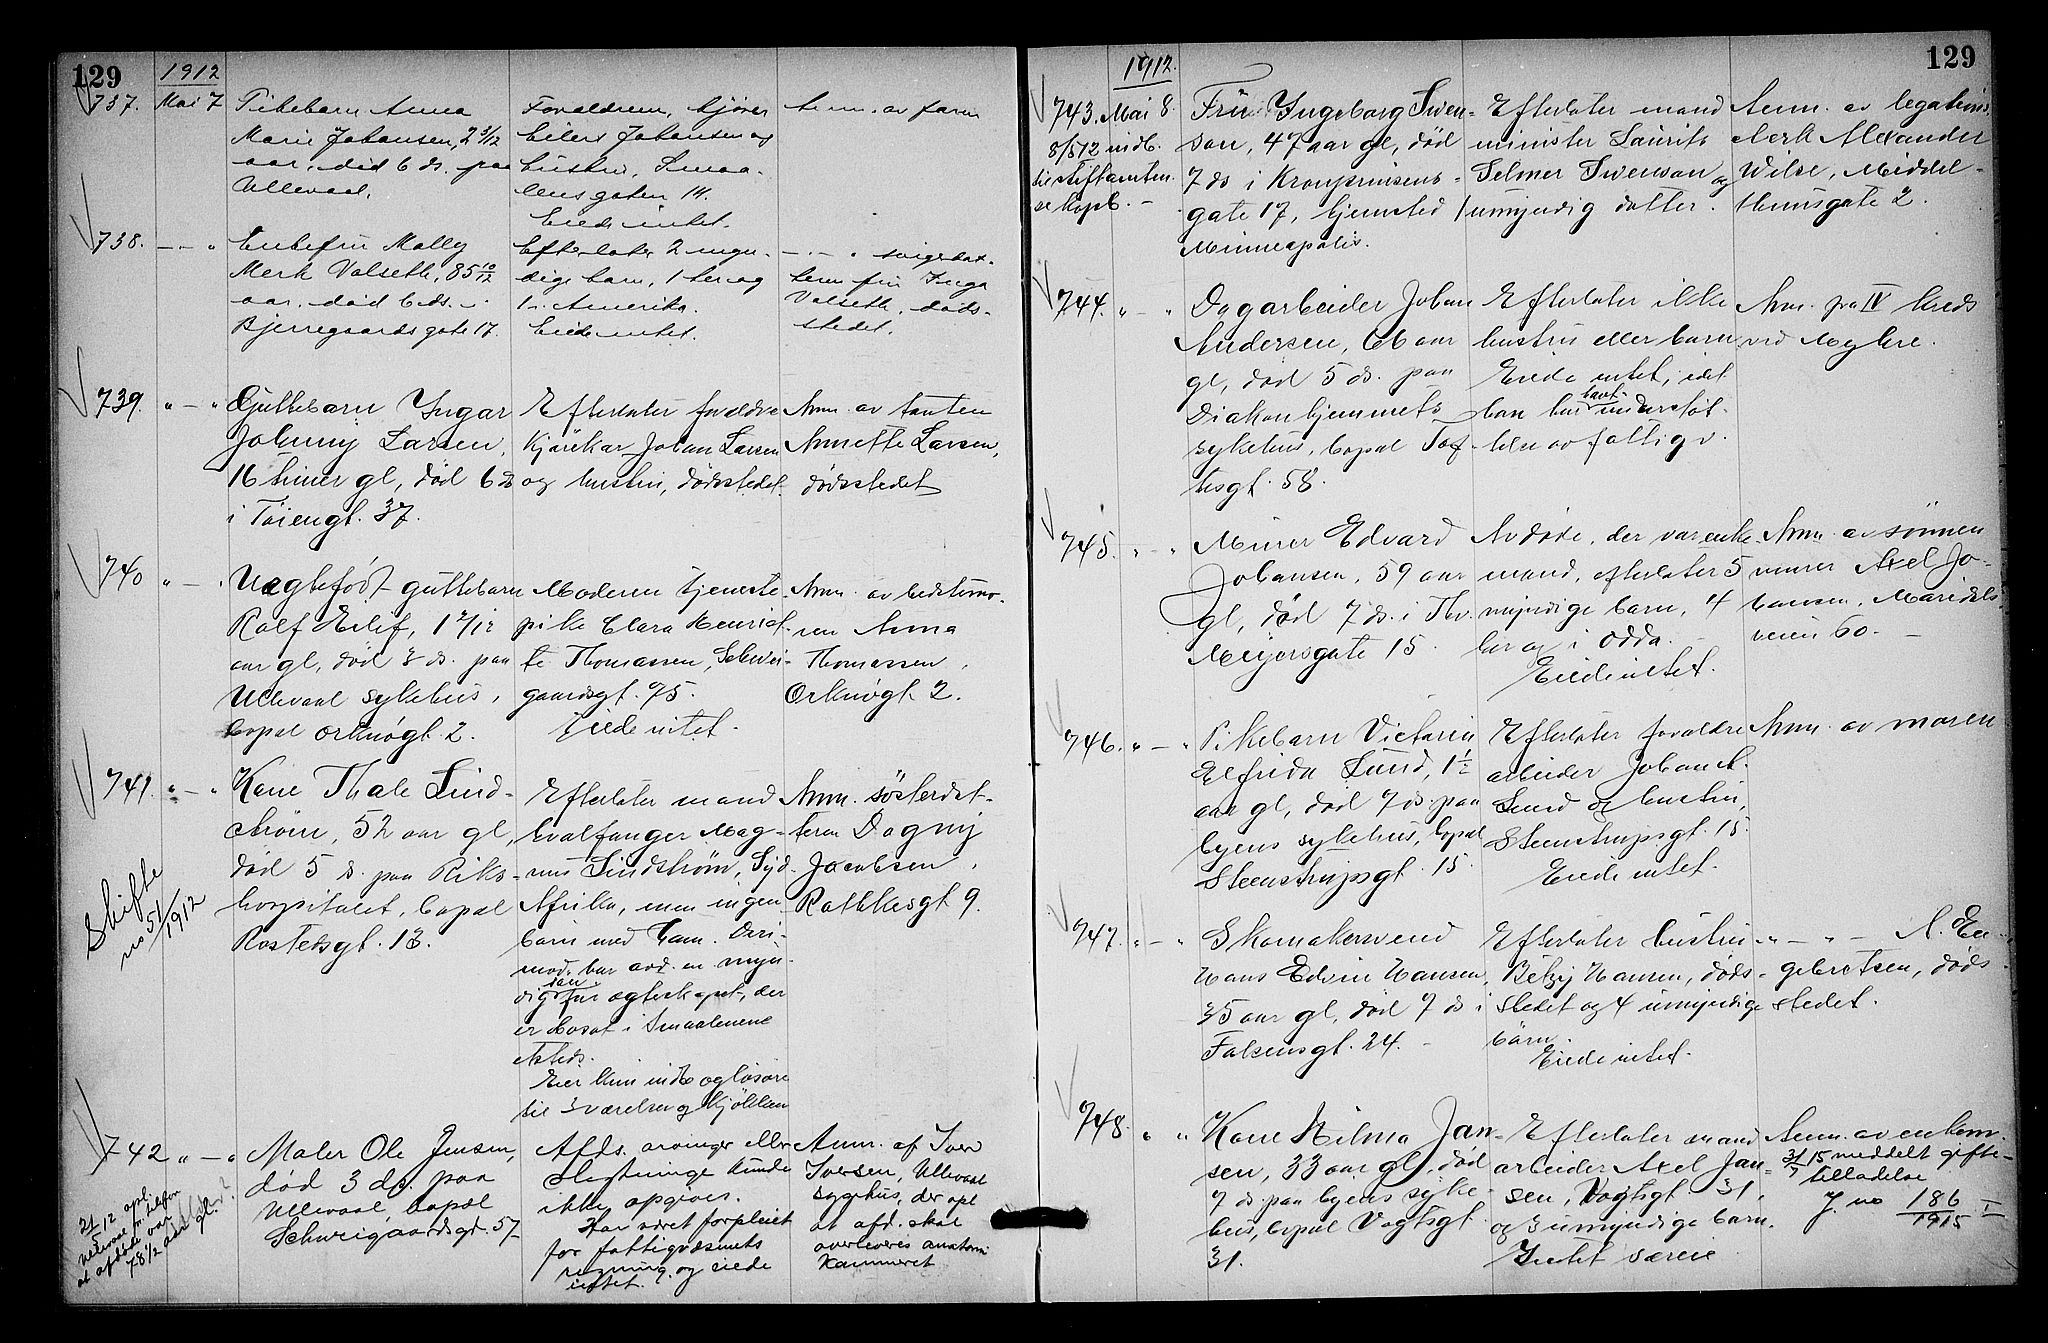 129
1912
737. Mai 7
Pikebarn Anna
Marie Johansen, 2 3/12
aar, död 6 ds. paa
Ullevaal.
Forældrene, kjører
Eilert Johansen og
hustru, Smaa-
lensgaten 14.
Eiede intet.
Anm. av faren
738. — „
Enkefru Molly
Merk Valseth, 85 10/12
aar, død 6 ds.
Bjerregaards gate 17.
Efterlater 2 myn-
dige barn, 1 her og
1 i Amerika.
Eiede intet.
— „ svigerdat-
teren fru Inga
Valseth, døds-
stedet.
739. „ — „
Guttebarn Yngar
Johnny Larsen,
16 timer gl, død 6 ds
i Töiengt. 37.
Efterlater forældre
Johan Larsen
og hustru, dödsstedet.
Anm. av tanten
Annette Larsen,
dödsstedet
740 „ — „
Uegtefödt guttebarn
Rolf Eilif, 1 7/12
aar gl, død 3 ds. paa
Ullevaal sykehus,
bopæl Orknögt. 2.
Moderen tjeneste-
pike Clara Henriet-
te Thomassen, Schwei-
gaardsgt. 75.
Eiede intet.
Anm. av bedstemo-
ren Anna
Thomassen,
Orknögt. 2.
741. „ — „
Skifte
no 51/1912
Kone Thale Lind-
ström, 52 aar gl,
død 5 ds. paa Riks-
hospitalet, bopæl
Rostedsgt. 13.
Efterlater mand
hvalfanger Mag-
nus Lindström, Syd
Afrika, men ingen
barn med ham. Deri-
mod har avd. en myn-
dig før ægteskapet, der
er bosat i Smaalenene
etsteds.
Eier kun indbo og lösöre
til 3 værelser og kjökken
Anm. søsterdat-
teren Dagny
Jacobsen,
Rathkesgt 9.
742 „ — „
21/5 12 opl.
Ullevaal pr telefon
at afdøde var
78 1/2 aar gl.
Maler Ole Jensen,
død 3 ds. paa
Ullevaal, bopæl
Schweigaardsgt. 57
Afds. arvinger eller
slegtninge kunde
ikke opgives.
Har været forpleiet
for fattigvæsenets
regning og eiede
intet.
Anm. af Iver
Iversen, Ullevaal
sygehus, der opl.
at afd. skal
overleveres anatomi
kammeret
129
1912.
743. Mai 8.
8/5 12 indb.
til Stiftamten.
Frü Yngeborg Swen-
son, 47 aar gl, død
7 ds i Kronprinsens-
gate 17, hjemsted
Minneapolis.
Efterlater mand
minister Laurits
Selmer Swenson og
1 umyndig datter.
Anm. av legations
Alexander
Wilse, Middel-
thunsgate 2.
744. „ — „
Dagarbeider Johan
Andersen, 66 aar
gl, død 5 ds. paa
Diakonhjemmets
sykehus, bopæl Tof-
tesgt. 58.
Efterlater ikke
hustru eller barn
Eiede intet, idet
han har havt understöt-
telse av fattigv.
Anm. fra IV kreds
ved Myhre.
745. „ — „
Murer Edvard
Johansen, 59 aar
gl, död 7 ds. i Thv.
Meyersgate 15.
Avdøde, der var enke-
mand, efterlater 5
myndige barn, 4
her og 1 i Odda.
Eiede intet.
Anm. av sönnen
murer Axel Jo-
hansen, Maridals
veien 60. —
746. „ — „
Pikebarn Victoria
Elfrida Lund, 1 1/2
aar gl, död 7 ds. paa
byens sykehus, bopæl
Steenstrupsgt. 15.
Efterlater forældre
arbeider Johan A.
Lund og hustru,
Steenstrupsgt. 15.
Eiede intet.
Anm. av moren
747. „ — „
Skomakersvend
Hans Edvin Hansen,
35 aar gl, død 7 ds i
Falsensgt. 24. —
Efterlater hustru
Betzy Hansen, døds-
stedet og 4 umyndige
barn.
Eiede intet.
„ — „ — A. En-
gebretsen, døds-
stedet.
748. „ „
Kone Hilma Jan-
sen, 33 aar gl, død
7 ds. paa byens syke-
hus, bopæl Vogtsgt.
31.
Efterlater mand
arbeider Axel Jan-
sen, Vogtsgt. 31,
og 3 umyndige barn.
Intet særeie
Anm. av enkem.
31/7 15 meddelt gifte-
tilladelse
J. no 186/1915 I